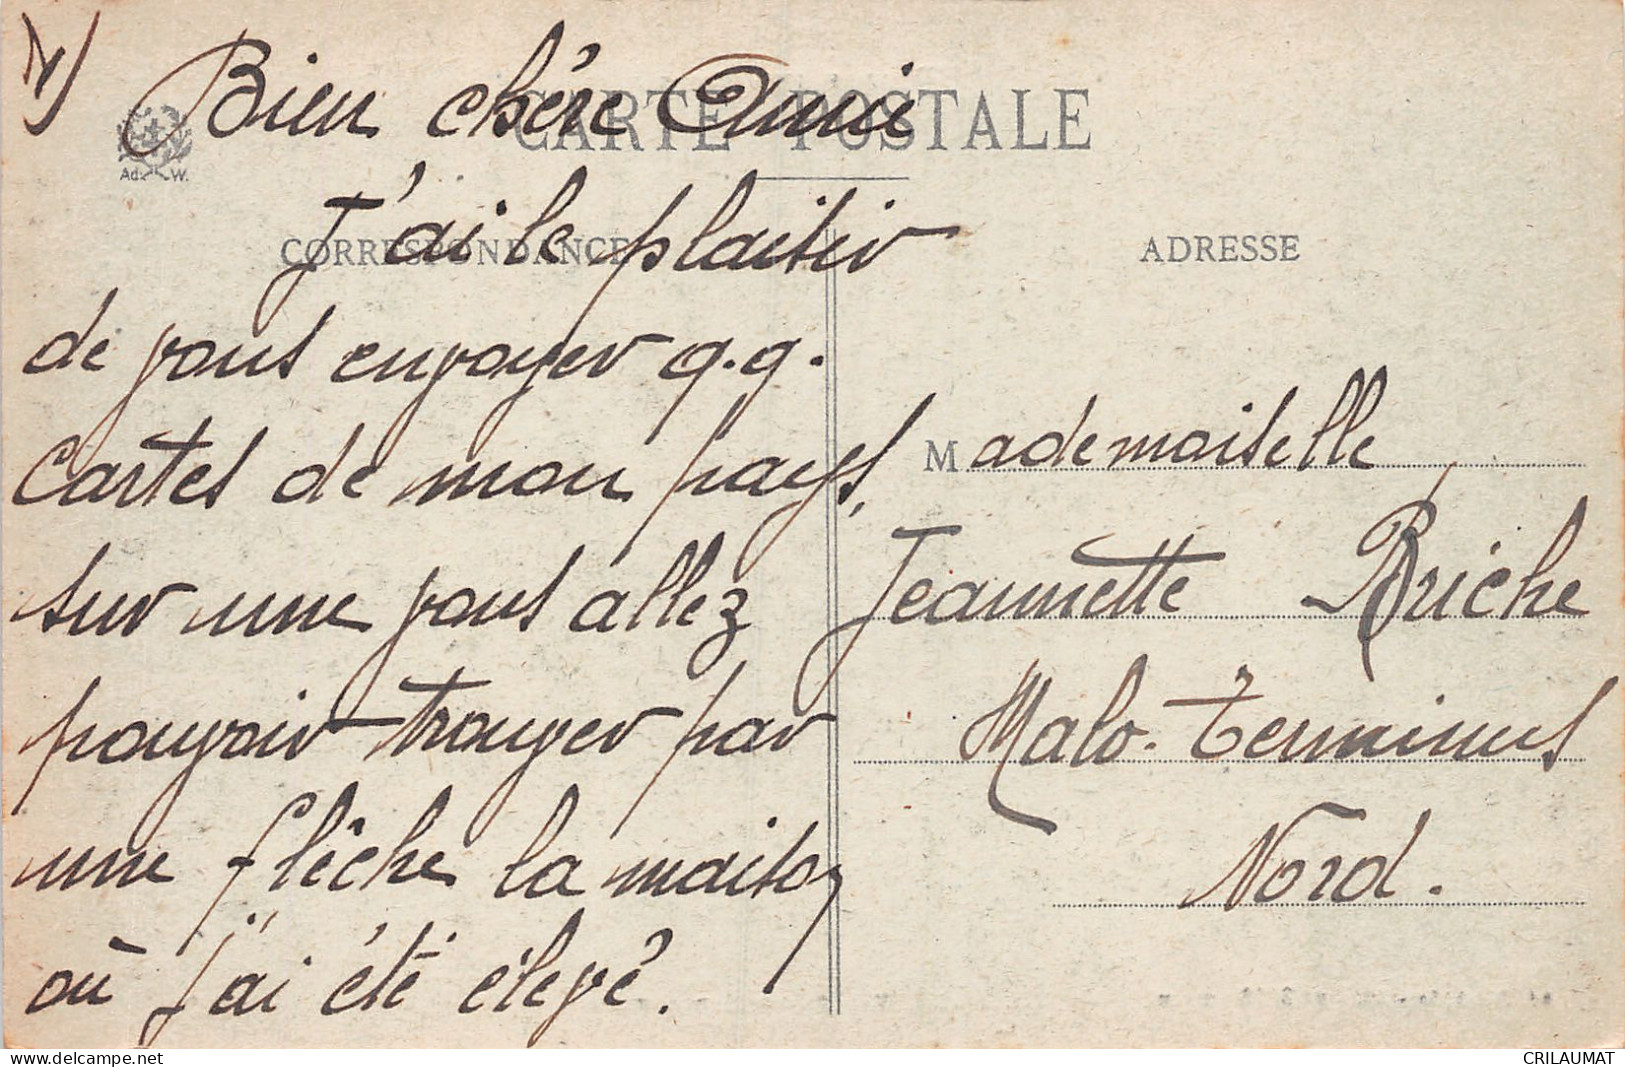 Bien chère Amie
CARTE POSTALE
Ad. W.
CORRESPONDANCE
ADRESSE
J'ai le plaisir
de vous envoyer q.q.
Cartes de mon pays,
sur une vous allez
pouvoir trouver par
une flêche la maison
où j'ai été élevé.
Mademoiselle,
Jeannette Briche
Malo-Terminus
Nord.
delcampe.net
CRILAUMAT